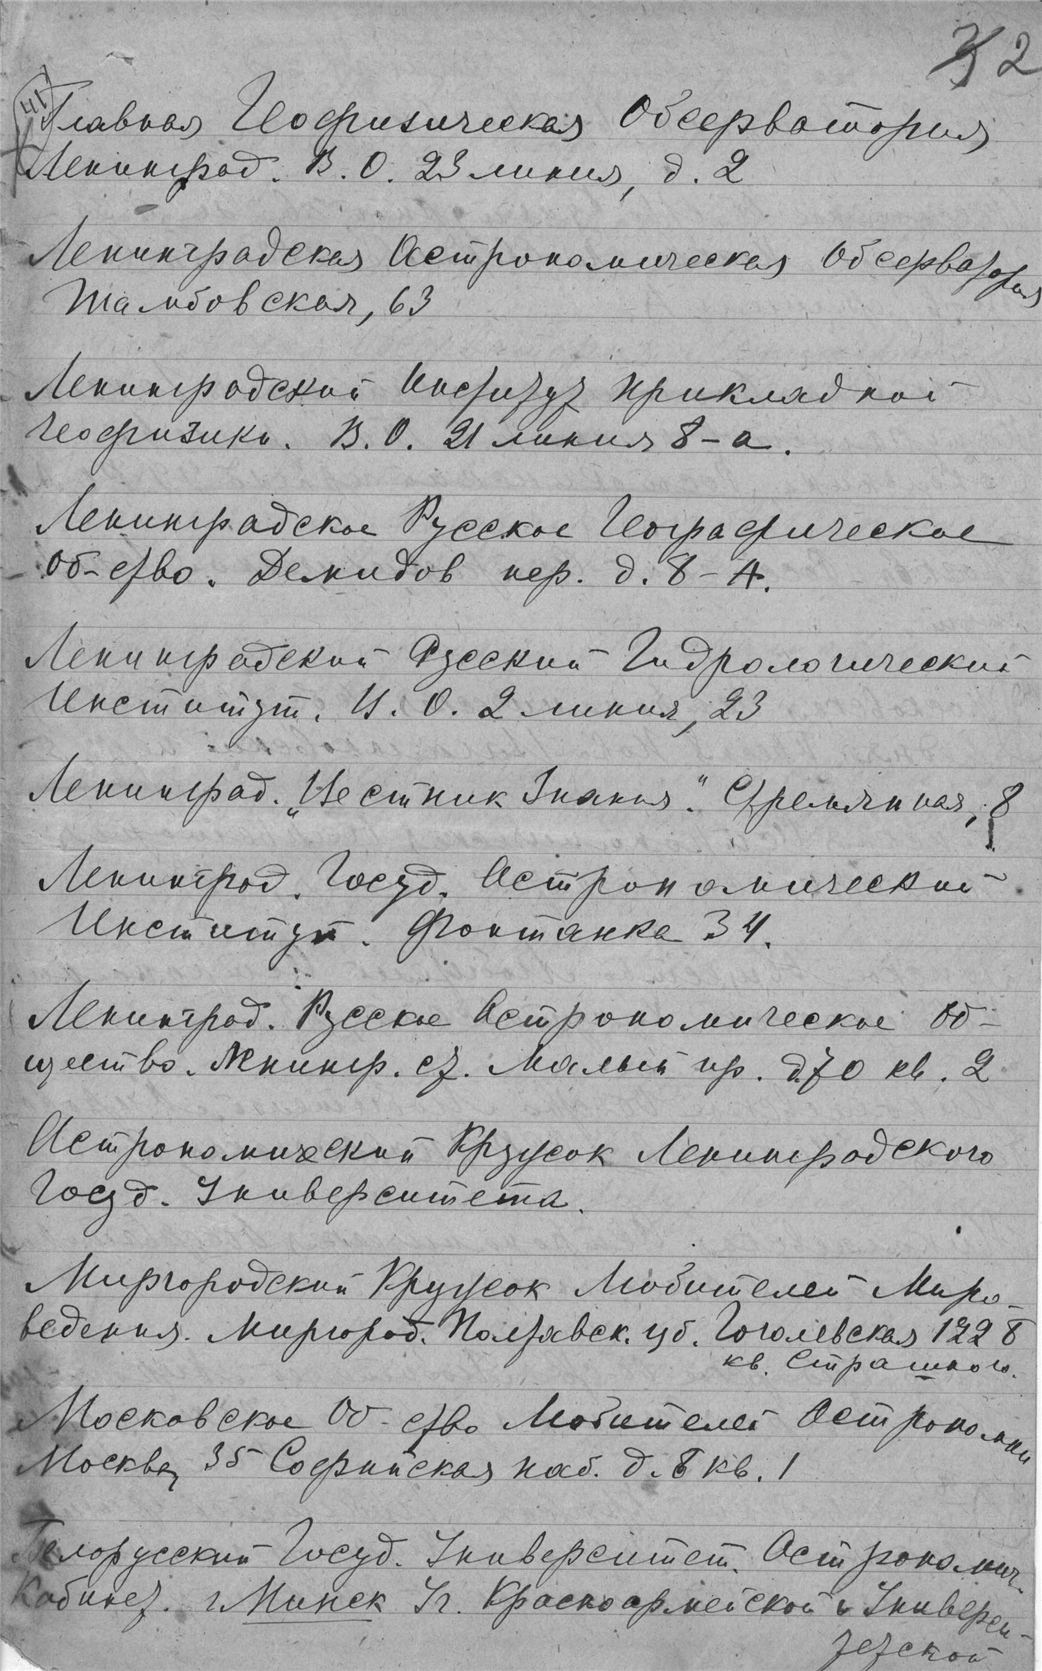 32
41
Главная Геофизическая Обсерватория
Ленинград. В. О. 23 линия, д. 2
Ленинградская Астрономическая Обсерватория
Тамбовская, 63
Ленинградский Институт прикладной
геофизики. В. О. 21 линия 8-а.
Ленинградское Русское Географическое
Об-ство. Демидов пер. д. 8-А.
Ленинградский Русский Гидрологический
Институт. В. О. 2 линия, 23
Ленинград. „Вестник Знания". Стремянная, 8
Ленинград. Госуд. Астрономический
Институт. Фонтанка 34.
Ленинград. Русское Астрономическое Об-
щество. Ленингр. ст. Малый пр. д. 70 кв. 2
Астрономический Кружок Ленинградского
Госуд. Университета.
Миргородский Кружок Любителей Миро-
ведения. Миргород. Полтавск. губ. Гоголевская 122 б
кв. Страшного.
Московское Об-ство Любителей Астрономии
Москва, 35 Софийская наб. д. 8 кв. 1
Белорусский Госуд. Университет. Астрономич.
Кабинет. г. Минск Уг. Красноармейской и Универси-
тетской